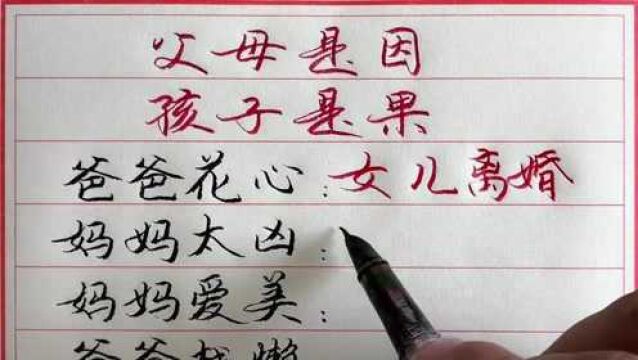 父母是因
孩子是果
爸爸花心:女儿离婚
妈妈太凶:
妈妈爱美:
爸爸